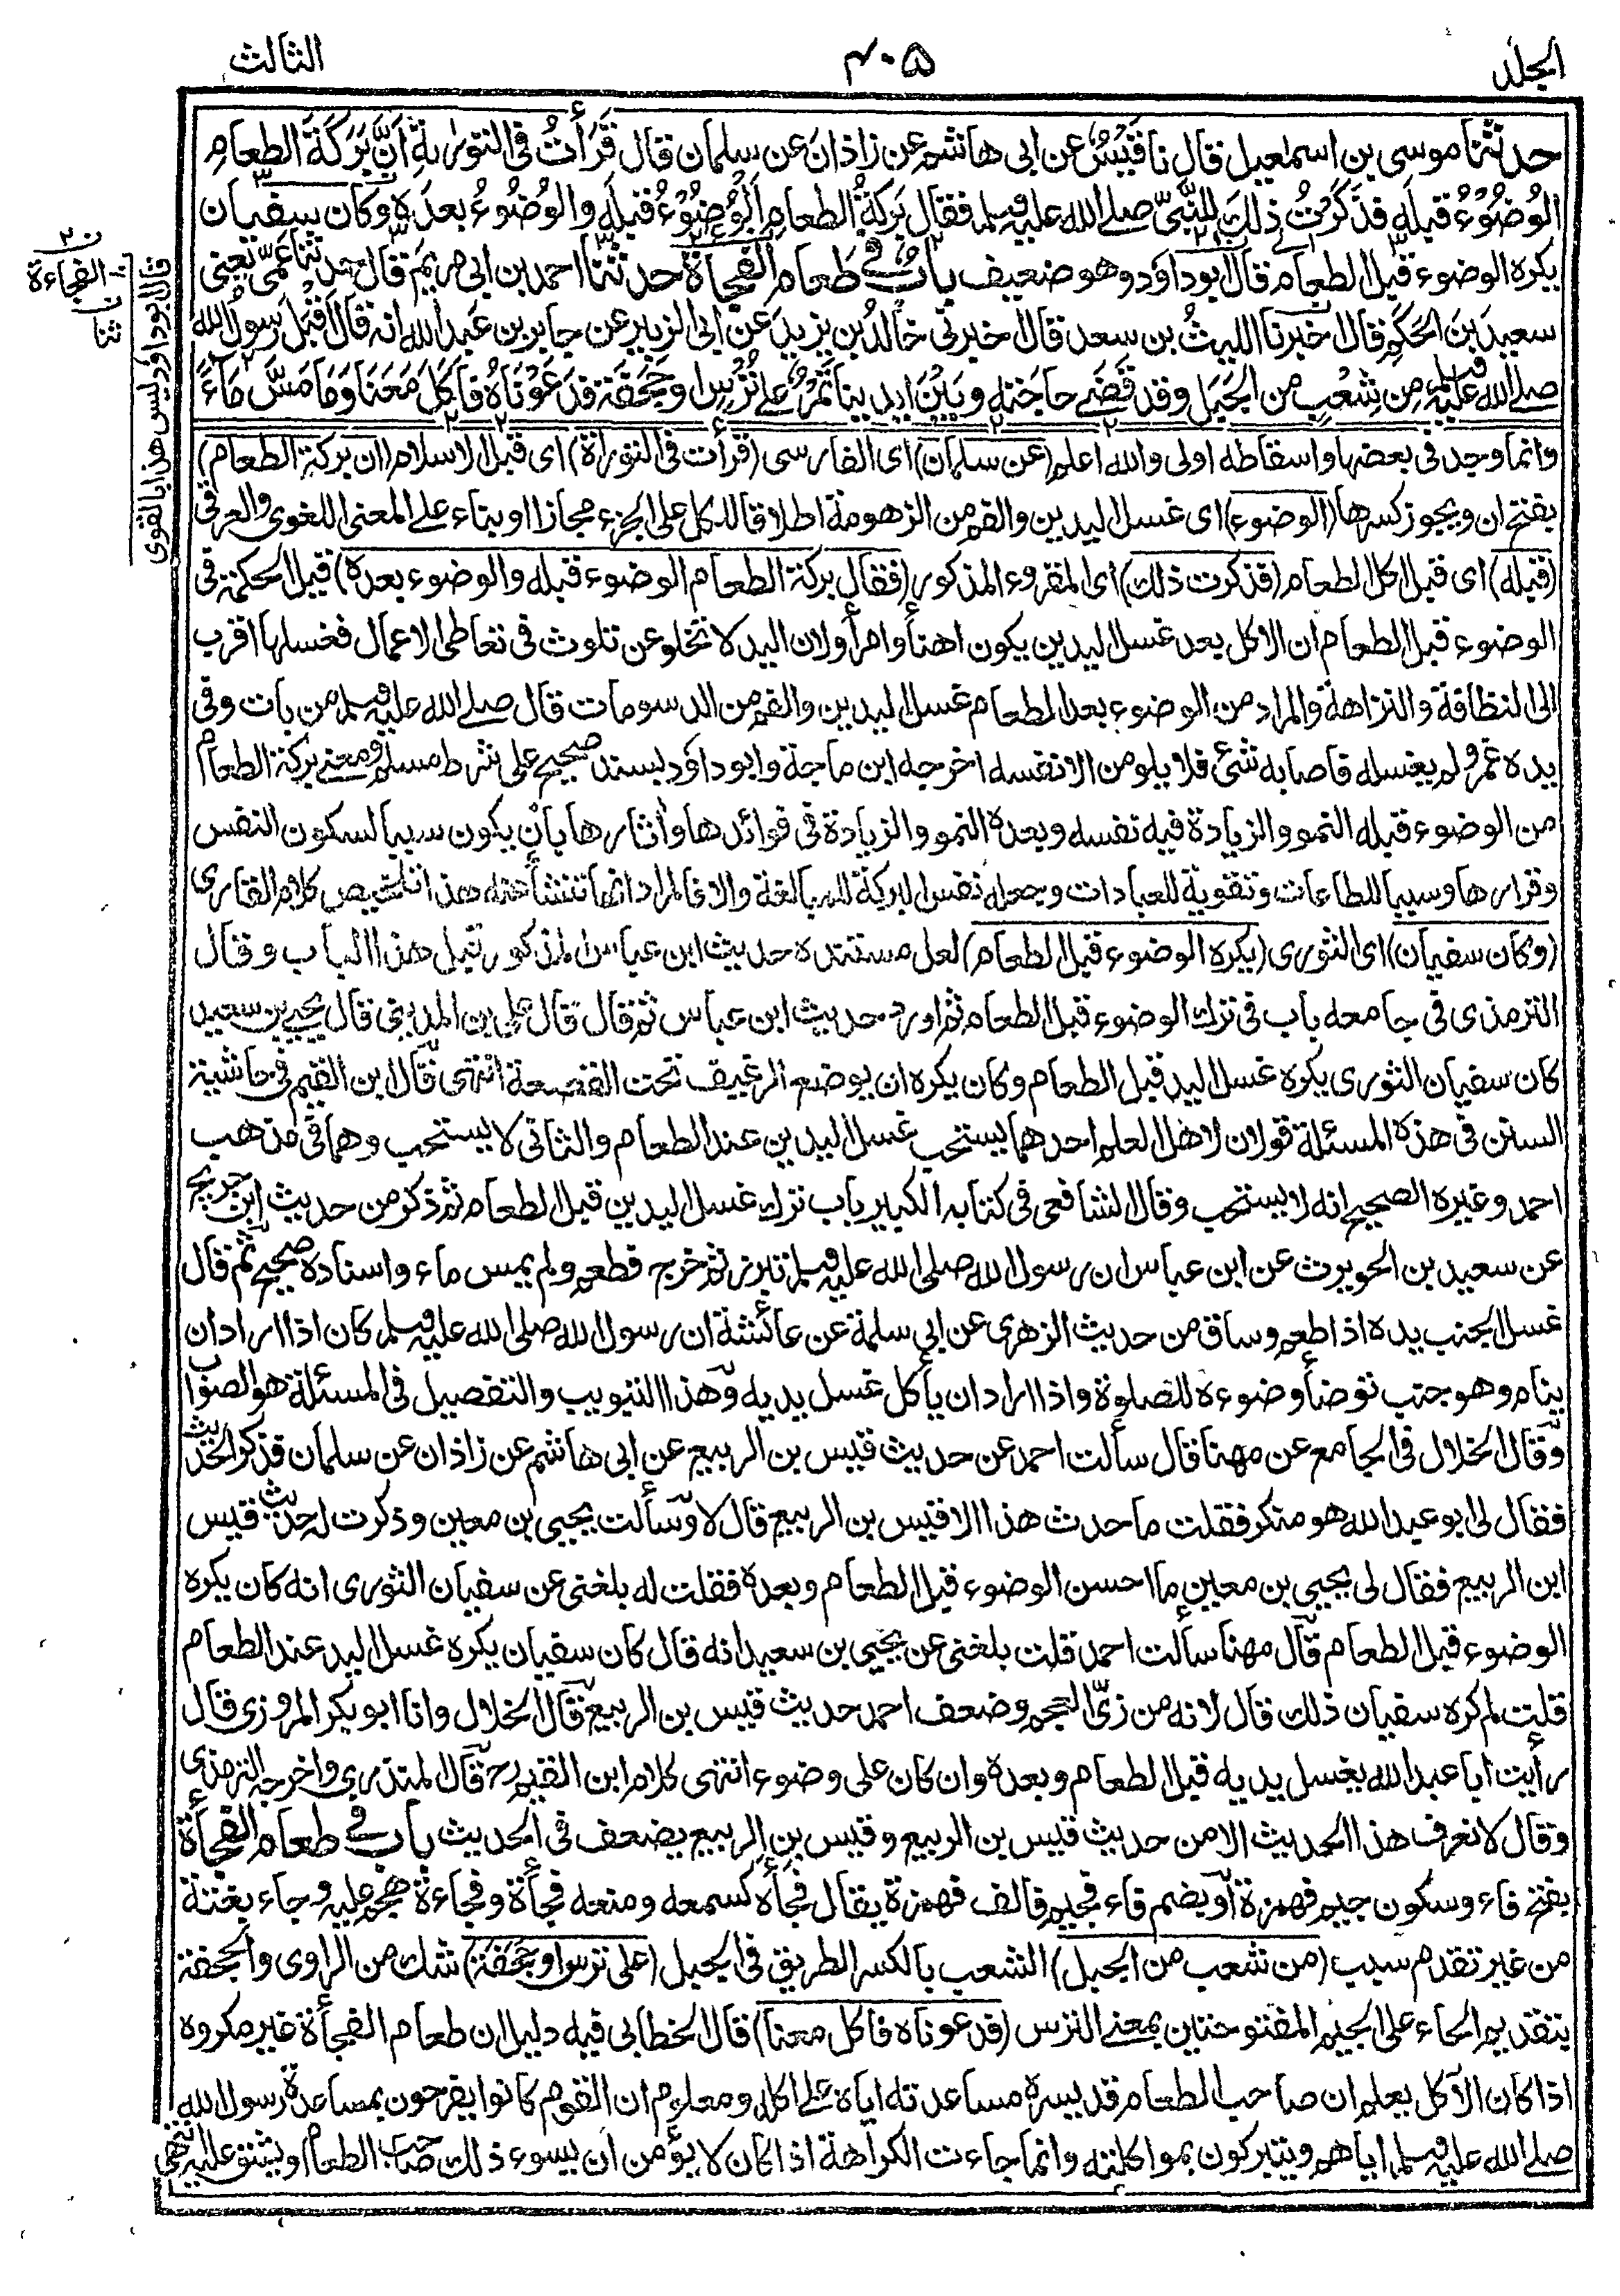 الجلد ۴۰۵ الثالث
حدثنا موسى بن اسمعيل قال نا قَيْسٌ عن ابى هاشم عن زاذان عن سلمان قال قَرَأتُ فى التورٰىةِ اَنَّ بَرَكَةَ الطعامِ
الوُضُوْءُ قبلَه فذَكَرتُ ذلك للنَّبِىِّ صلے الله عليه وسلم فقال بَرَكةُ الطعامِ اَلْوُضُوْءُ قبلَه والوُضُوْءُ بعدَه وكان سفيان
يكره الوضوء قبل الطعام قال ابوداؤد وهو ضعيف بابٌ فى طَعام الفُجَاةِ حدثنا احمد بن ابى مريم قال حدثنا عَمِّى يَعنى
سعيدَ بنَ الحَكَمِ قال اخبرنا الليثُ بن سعد قال اخبرنى خالدُ بن يزيدَ عن ابى الزبير عن جابر بن عبد الله انه قال اَقْبَلَ رسولُ الله
صلے الله عليه وسلم من شِعْبٍ من الجَبَل وقد قَضٰے حاجَتَه وبَيْنَ ايدينا تَمْرٌ على تُرْسٍ او حَجَفَةٍ فَدَعَوْنَاهُ فاَكَلَ مَعَنَا وَمَا مَسَّ مَاءً
وانما وجد فى بعضها واسقاطه اولى والله اعلم (عن سلمان) اى الفارسى (قرأت فى التوراة) اى قبل الاسلام (ان بركة الطعام)
بفتح ان ويجوز كسرها (الوضوء) اى غسل اليدين والفم من الزهومة اطلاقا للكل على الجزء مجازا او بناء على المعنى اللغوى والعرفى
(قبله) اى قبل اكل الطعام (فذكرت ذلك) اى المقروء المذكور (فقال بركة الطعام الوضوء قبله والوضوء بعده) قيل الحكمة فى
الوضوء قبل الطعام ان الاكل بعد غسل اليدين يكون اهنأ وامرأ ولان اليد لا تخلو عن تلوث فى تعاطى الاعمال فغسلها اقرب
الى النظافة والنزاهة والمراد من الوضوء بعد الطعام غسل اليدين والفم من الدسومات قال صلے الله عليه وسلم من بات وفى
يده غمر ولم يغسله فاصابه شئ فلا يلومن الا نفسه اخرجه ابن ماجة وابوداؤد بسند صحيح على شرط مسلم ومعنے بركة الطعام
من الوضوء قبله النمو والزيادة فيه نفسه وبعده النمو والزيادة فى فوائدها واٰثارها بان يكون سببا لسكون النفس
وقرارها وسببا للطاعات وتقوية للعبادات وجعله نفس البركة للمبالغة والا فالمراد انها تنشأ عنه هذا تلخيص كلام القارى
(وكان سفيان) اى الثورى (يكره الوضوء قبل الطعام) لعل مستنده حديث ابن عباس المذكور قبل هذا الباب وقال
الترمذى فى جامعه باب فى ترك الوضوء قبل الطعام ثم اورد حديث ابن عباس ثم قال قال على بن المدينى قال يحيے بن سعيد
كان سفيان الثورى يكره غسل اليد قبل الطعام وكان يكره ان يوضع الرغيف تحت القصعة انتهى قال ابن القيم فى حاشية
السنن فى هذه المسئلة قولان لاهل العلم احدهما يستحب غسل اليدين عند الطعام والثانى لا يستحب وهما فى مذهب
احمد وغيره الصحيح انه لا يستحب وقال الشافعى فى كتابه الكبير باب ترك غسل اليدين قبل الطعام ثم ذكر من حديث ابن جريج
عن سعيد بن الحويرث عن ابن عباس ان رسول الله صلى الله عليه وسلم تبرز ثم خرج فطعم ولم يمس ماء واسناده صحيح ثم قال
غسل الجنب يده اذا طعم وساق من حديث الزهرى عن ابى سلمة عن عائشة ان رسول الله صلى الله عليه وسلم كان اذا اراد ان
ينام وهو جنب توضأ وضوءه للصلوة واذا اراد ان يأكل غسل يديه وهذا التبويب والتفصيل فى المسئلة هو الصواب
وقال الخلال فى الجامع عن مهنا قال سألت احمد عن حديث قيس بن الربيع عن ابى هاشم عن زاذان عن سلمان فذكر الحديث
فقال لى ابو عبد الله هو منكر فقلت ما حدث هذا الا قيس بن الربيع قال لا وسألت يحيى بن معين وذكرت له حديث قيس
ابن الربيع فقال لى يحيى بن معين ما احسن الوضوء قبل الطعام وبعده فقلت له بلغنى عن سفيان الثورى انه كان يكره
الوضوء قبل الطعام قال مهنا سألت احمد قلت بلغنى عن يحيى بن سعيد انه قال كان سفيان يكره غسل اليد عند الطعام
قلت لم كره سفيان ذلك قال لانه من زىّ العجم وضعف احمد حديث قيس بن الربيع قال الخلال وانا ابو بكر المروزى قال
رأيت ابا عبد الله يغسل يديه قبل الطعام وبعده وان كان على وضوء انتهى كلام ابن القيم رح قال المنذرى واخرجه الترمذى
وقال لا نعرف هذا الحديث الا من حديث قيس بن الربيع وقيس بن الربيع يضعف فى الحديث باب فى طعام الفجأة
بفتح فاء وسكون جيم فهمزة او بضم فاء فجيم فالف فهمزة يقال فجأه كسمعه ومنعه فجأة وفجاءة هجم عليه وجاء بغتة
من غير تقدم سبب (من شعب من الجبل) الشعب بالكسر الطريق فى الجبل (على ترس او حجفة) شك من الراوى والحجفة
بتقديم الحاء على الجيم المفتوحتين بمعنے الترس (فدعوناه فاكل معنا) قال الخطابى فيه دليل ان طعام الفجأة غير مكروه
اذا كان الآكل يعلم ان صاحب الطعام قد يسره مساعدته اياه على اكله ومعلوم ان القوم كانوا يفرحون بمساعدة رسول الله
صلے الله عليه وسلم اياهم ويتبركون بمواكلته وانما جاءت الكراهة اذا كان لا يؤمن ان يسوء ذلك صاحب الطعام او يشق عليه انتهى
قال ابوداؤد ليس هذا بالقوى
ن ٢
الفجاءة
ن
ثنا